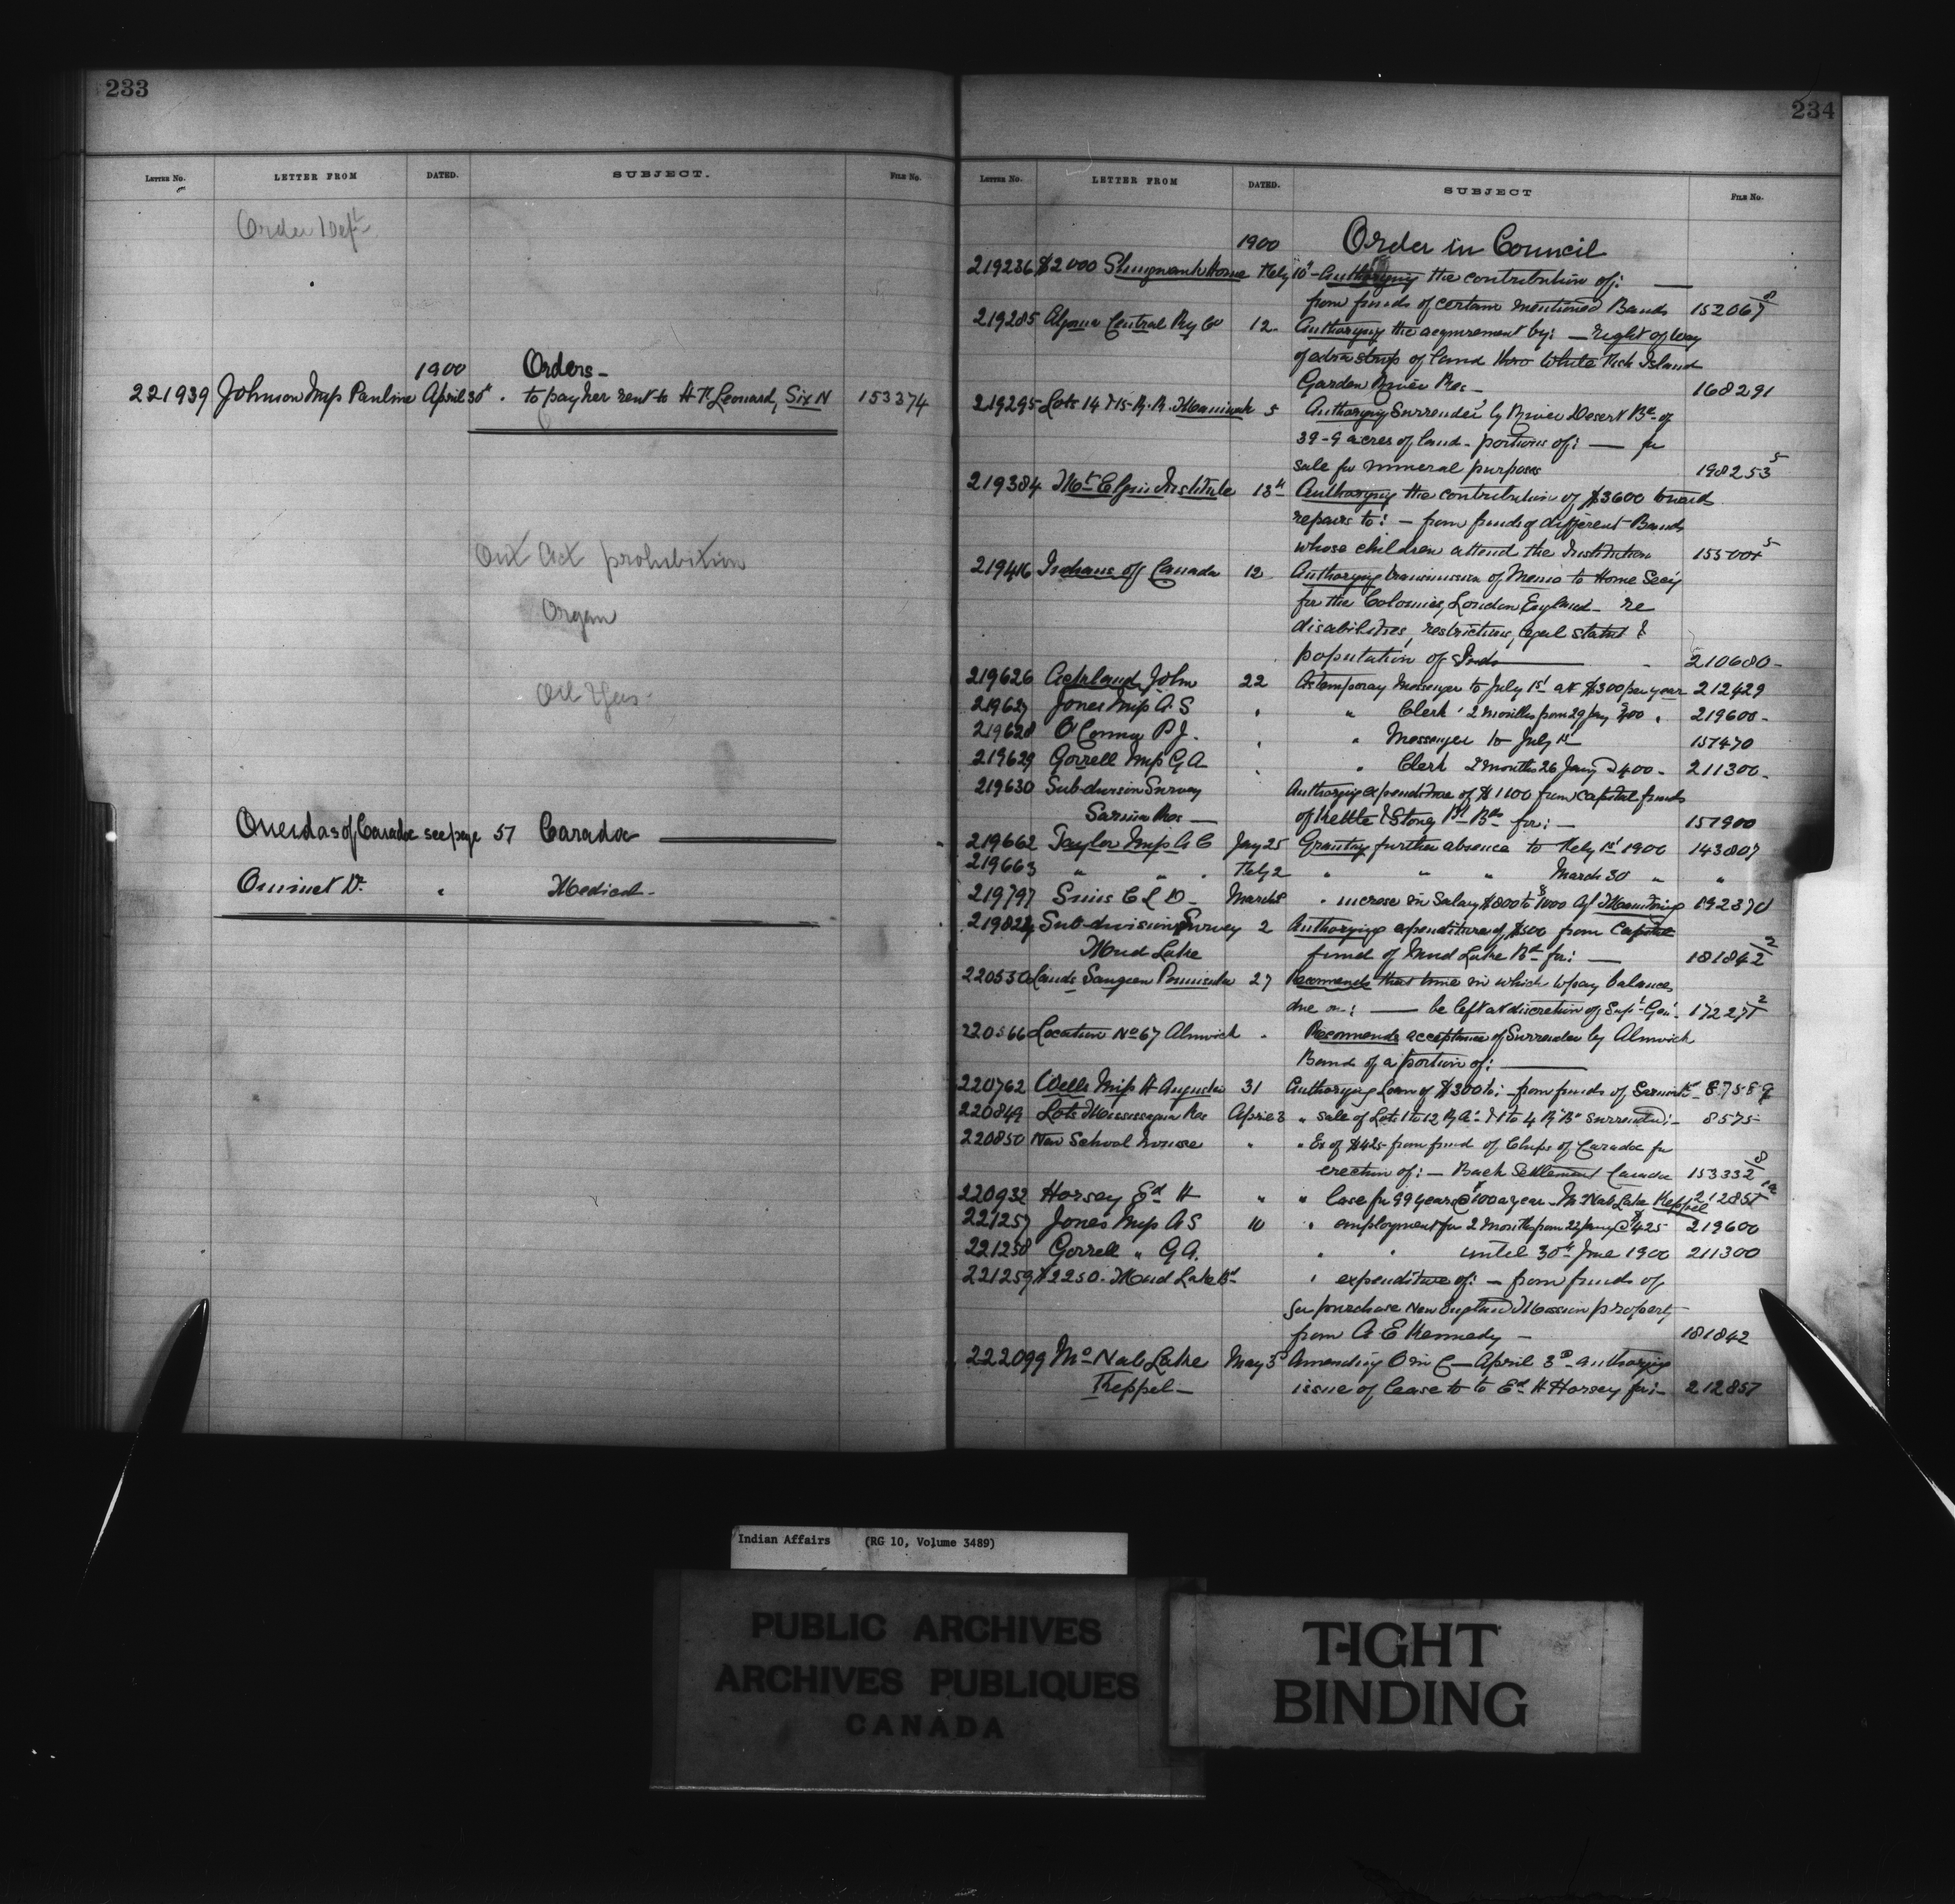 233
LETTER No. LETTER FROM DATED. SUBJECT. FILE No.
Order Dept
1900 Orders-
221939 Johnson Miss Pauline April 30th to pay her rent to H. Leonard, Six N 153374
Out Act prohibition
Organ
Oil Gas
Oneidas of Caradoc see page 57 Caradoc
Dr. " Medical -
234
LETTER No. LETTER FROM DATED. SUBJECT FILE No.
1900 Order in Council
219236 $2000 Shingwauk Home Feby 10" - Authorizing the contribution of: —
from funds of certain mentioned Bands 152067/8
219285 Algoma Central Ry Co 12 - Authorizing the acquirement by: — right of way
of strip of land thro White Island
Garden River Res - 168291
219295 Lots 14 & 15 - R. R. Maniwaki 5 Authorizing Surrender by River Desert Bd of
39-9 acres of land - portions of: — for
sale for mineral purposes 198253/5
219384 Mt Elgin Institute 13th Authorizing the contribution of $3600 towards
repairs to: - from funds of different Bands
whose children attend the Institution
219416 Indians of Canada 12 Authorizing transmission of Memo to Home Secy
for the Colonies, London England - re
disabilities, restrictions, legal status &
population of Inds 210680-
219626 Ackland John 22 As temporary Messenger to July 1st at $300 per year 212429
219627 Jones Miss A. S " " Clerk 2 months from 29 Jany $400 219600-
219628 O'Connor P. J. " " Messenger to July 1st 157470
219629 Gorrell Miss G A " " Clerk 2 months 26 Jany @ 400 - 211300-
219630 Sub-division Survey Authorizing expenditure of $1100 from capital funds
Sarnia Res — of Kettle & Stony Pt Bds for: — 157900
219662 Taylor Miss A C Jany 25 Granting further absence to Feby 1st 1900 143807
219663 " " " Feby 2 " " " March 30 " "
219797 Sims C L D - March 8 " increase in Salary $800 to $1000 Agt Manitowaning 192370
219824 Sub-division Survey 2 Authorizing expenditure of $500 from Capital
Mud Lake fund of Mud Lake Bd for: — 181842/2
220530 Lands Saugeen Peninsula 27 Recommends that time in which to pay balances
due on: — be left at discretion of Supt Gen'l 172271/2
220566 Location No 67 Alnwick " Recommends acceptance of Surrender by Alnwick
Band of a portion of: —
220762 Wells Miss H Augusta 31 Authorizing Loan of $300 to: - from funds of Sarnia Bd - 8758-9
220849 Lots Mississagua Res April 3 " sale of Lots 1 to 12 R "A" & 1 to 4 R "B" surrendered: - 8575-
220850 New School House " " Ex of $425 from fund of Chips of Caradoc for
erection of: — Back Settlement Caradoc 153332/8
220932 Horsey Ed H " " lease for 99 years @ $100 a year - McNab Lake Keppel
221257 Jones Miss A S 10 " employment for 2 months from 22 Jany @ $425 219600
221258 Gorrell " G A. " " until 30th June 1900 211300
221259 $2250. Mud Lake Bd " expenditure of: — from funds of
for purchase New England Mission property
from A E Kennedy - 181842
222099 McNab Lake May 5 Amending O in C — April 3d authorizing
Keppel — issue of Lease to to Ed H Horsey for: - 212857
Indian Affairs (RG 10, Volume 3489)
PUBLIC ARCHIVES
ARCHIVES PUBLIQUES
CANADA
TIGHT
BINDING